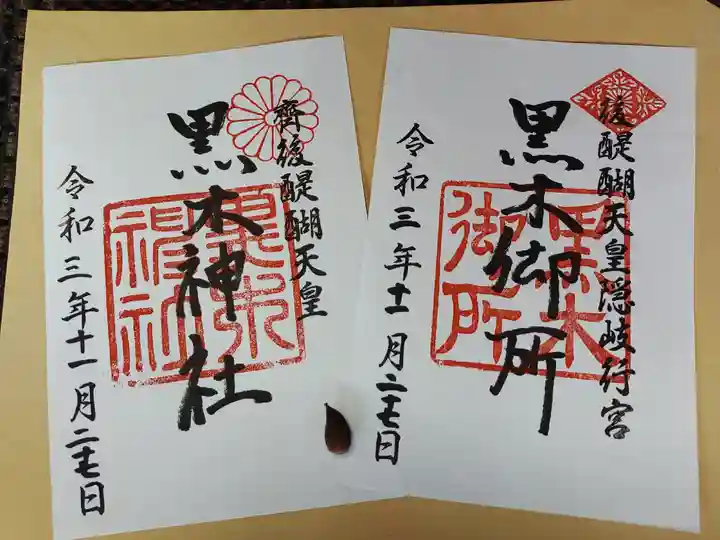 後醍醐天皇隠岐行宮
黒木御所
黒木御所
令和三年十一月二七日
齊後醍醐天皇
黒木神社
黒木神社
令和三年十一月二七日